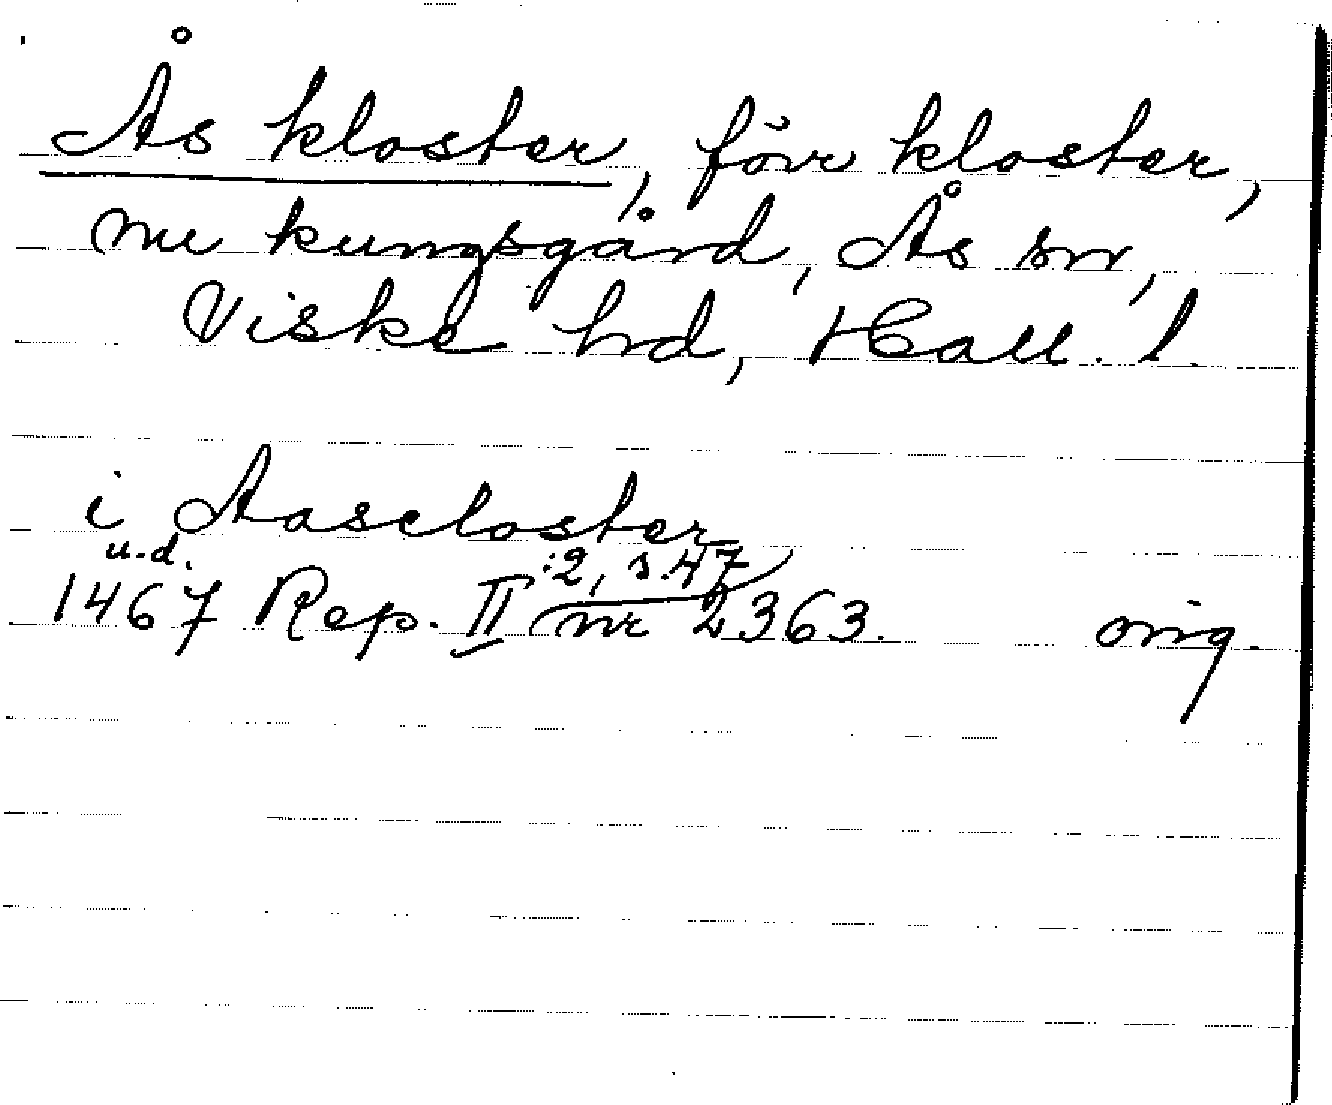 Ås kloster, förr kloster,
nu kungsgård, Ås sn,
Viske hd, Hall. l.
i Aascloster
u.d.
1467 Rep. II :2, s. 47 nr 2363. orig.